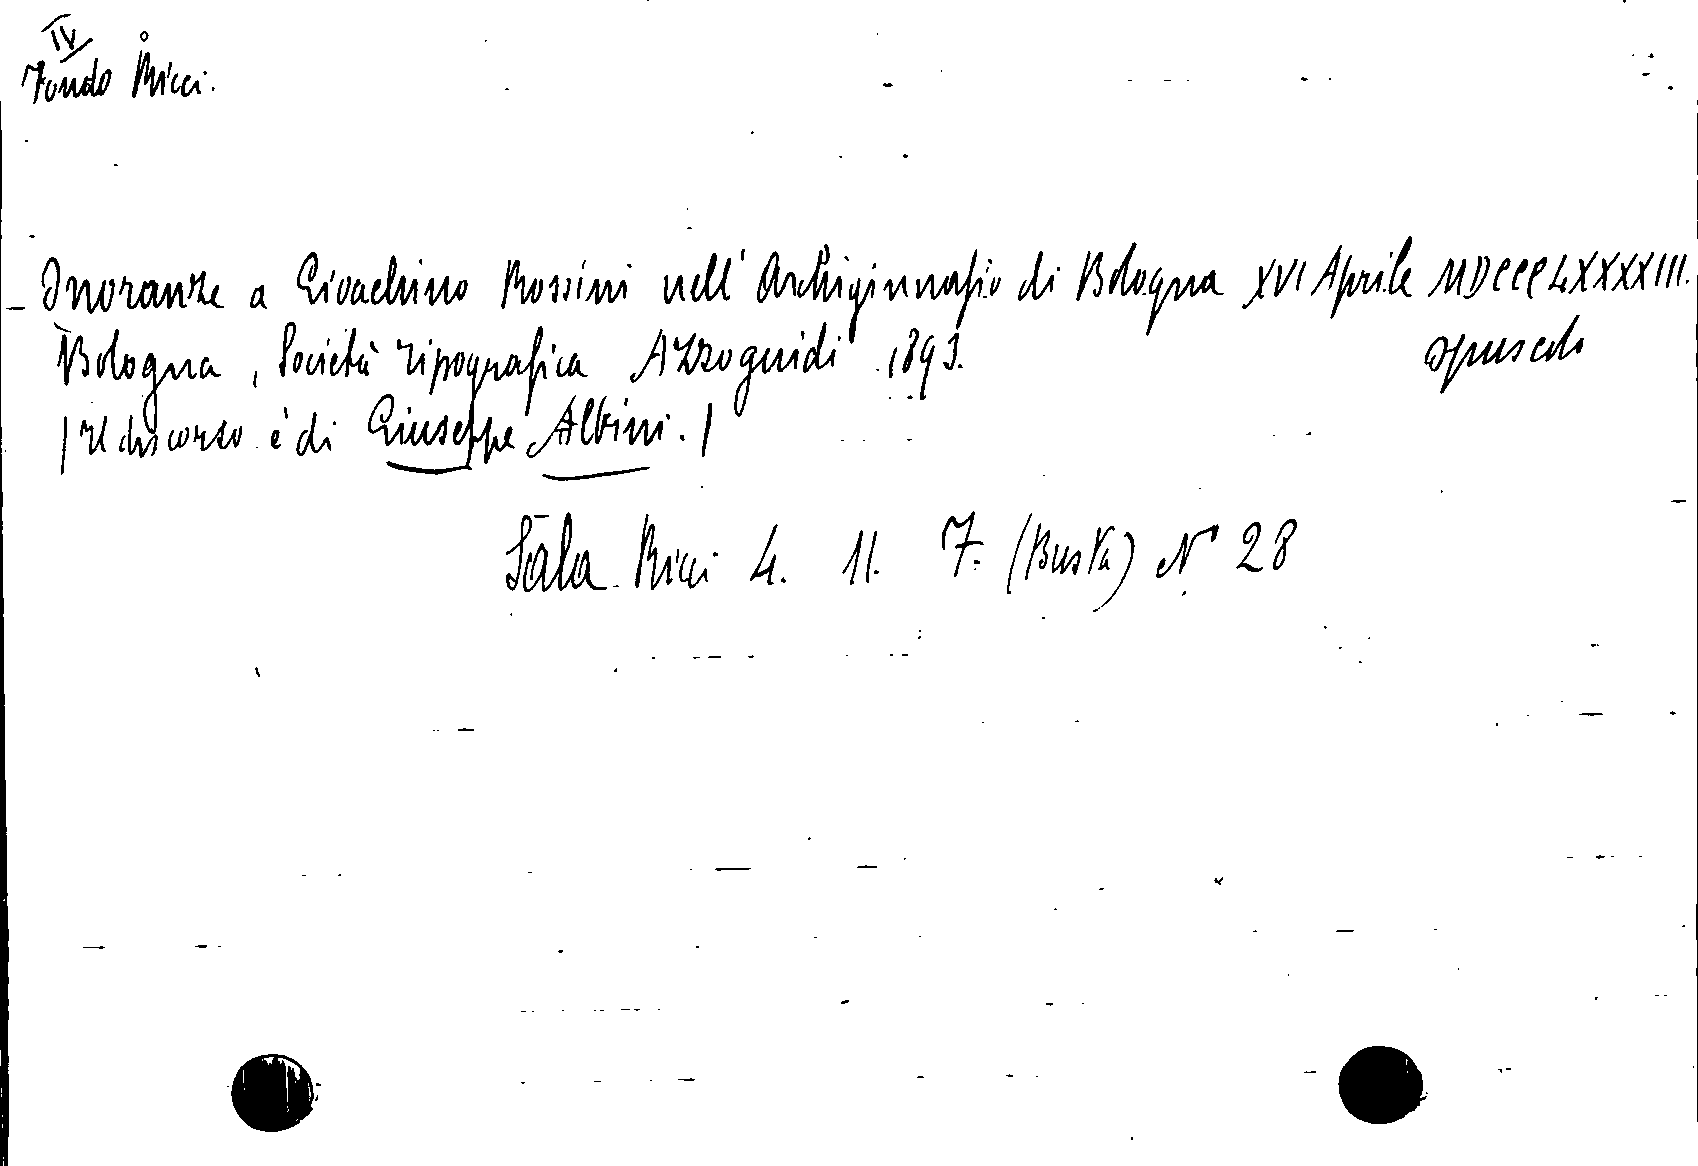 IV
Fondo Ricci.
Onoranze a Gioachino Rossini nell' Archiginnasio di Bologna XVI Aprile MDCCCLXXXXIII.
Bologna, Società Tipografica Azzoguidi 1893. opuscolo
/Il discorso è di Giuseppe Albini./
Sala Ricci 4. 11. 7. (Busta) N° 28